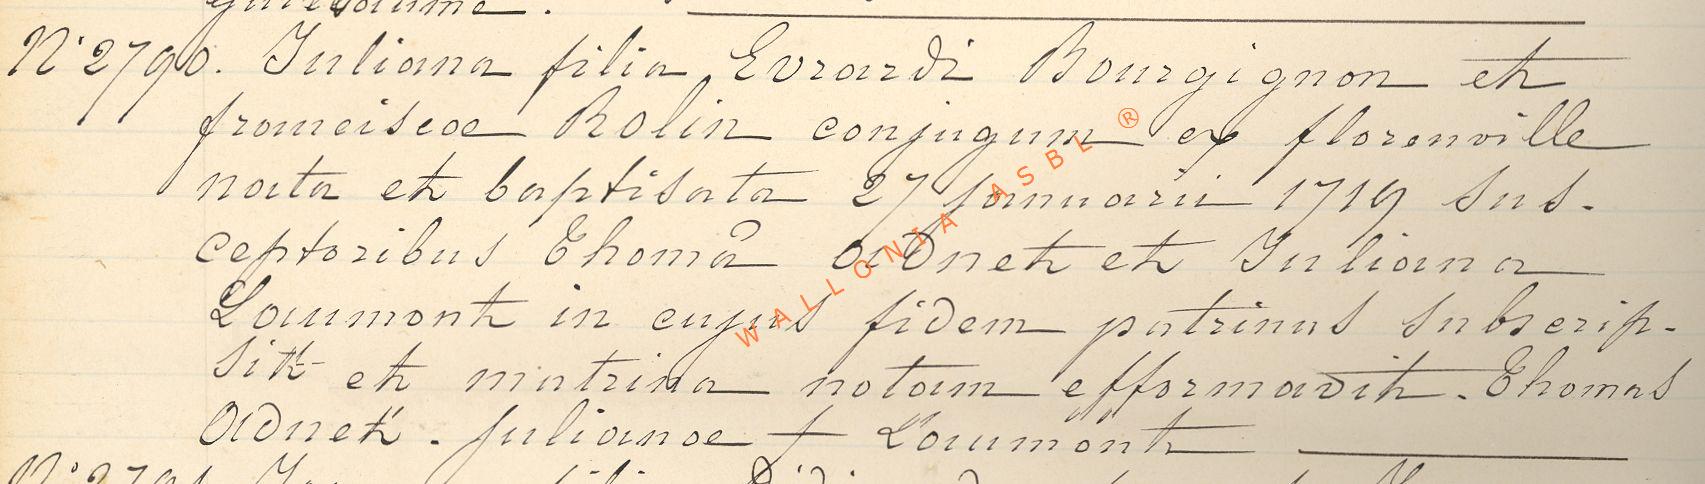 guillaume.
N° 2790. Juliana filia Evrardi Bourgignon et
franciscae Rolin conjugum ex florenville
nata et baptisata 27 januarii 1719 sus-
ceptoribus Thomâ Adnet et Juliana
Laumont in cujus fidem patrinus subscrip-
sit et matrina notam efformavit. Thomas
Adnet. julianae + Laumont
WALLONIA ASBL ®
N° 2791